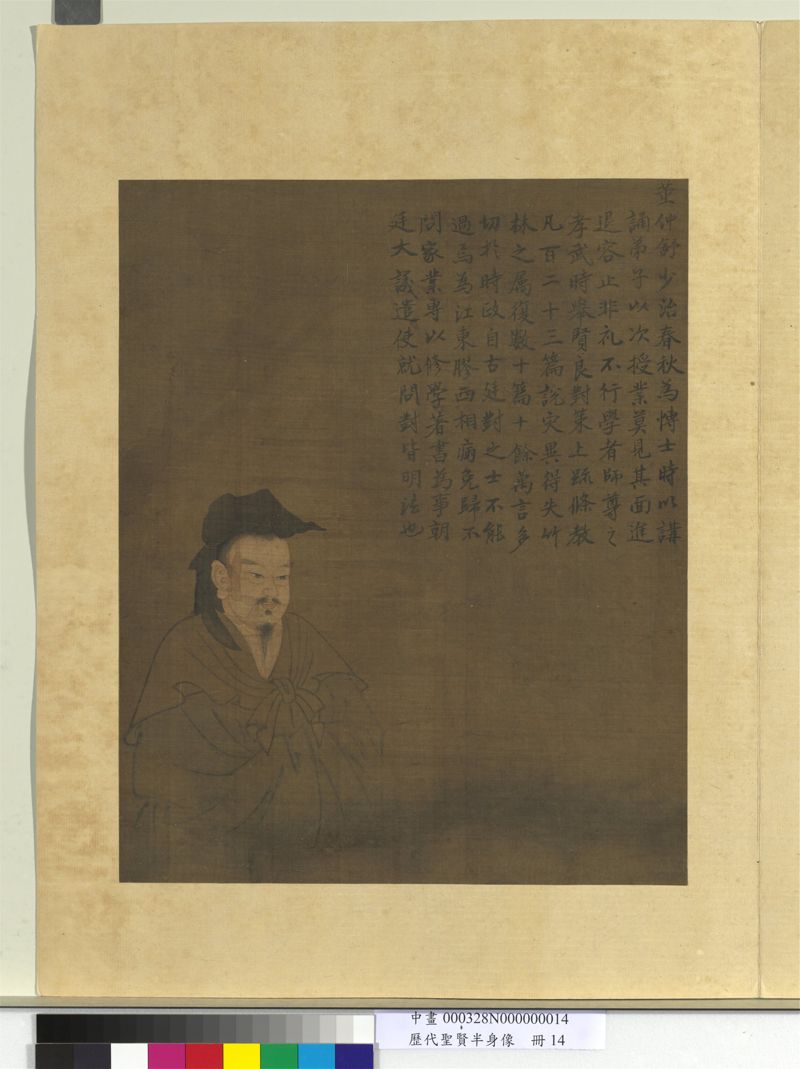 董仲舒少治春秋為博士時以講
誦弟子以次授業莫見其面進
退容止非礼不行學者師尊之
孝武時舉賢良對策上疏條教
凡百二十三篇說灾異得失竹
林之属復數十篇十餘萬言多
切於時政自古廷對之士不能
過焉為江東膠西相病免歸不
問家業專以修學著書為事朝
廷大議遣使就問對皆明法也
中畫 000328N000000014
歷代聖賢半身像 冊 14